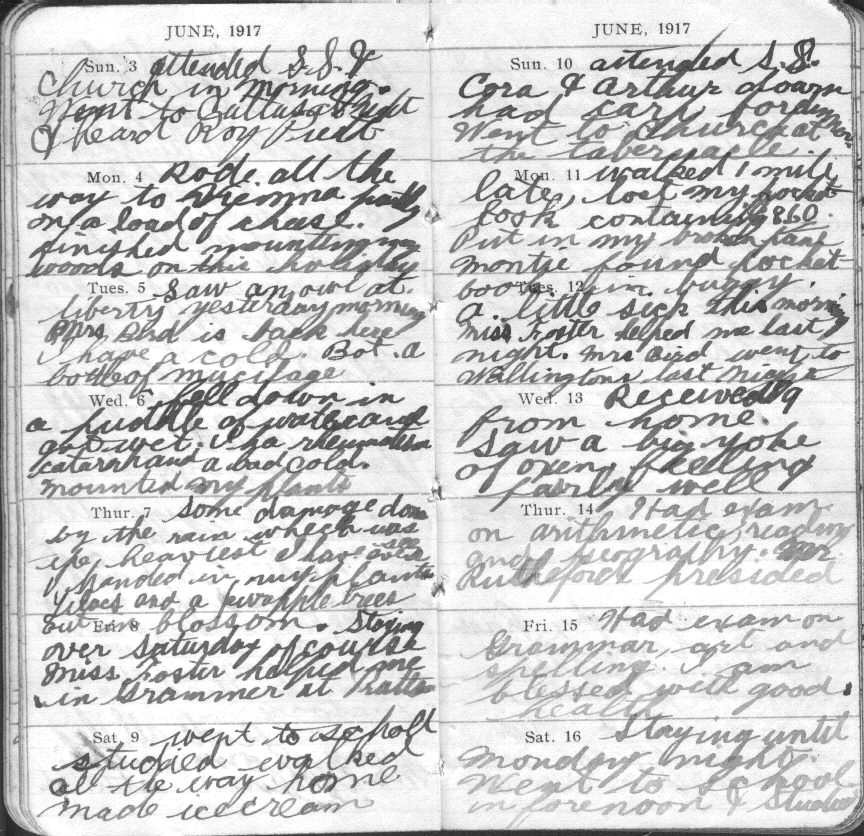 JUNE, 1917
Sun. 3 attended S.S. &
Church in morning.
Went to at night
& heard Roy
Mon. 4 Rode all the
way to Vienna partly
on a load of chese.
finished mountting my
woods on this holiday
Tues. 5 Saw an owl at
liberty yesterday morning
Mrs Bird is back here
i have a cold. Bot. a
bottle of mucilage
Wed. 6 fell down in
a puddle of water and
got wet. I ha rheumatism
catarrh and a bad cold.
mounted my plants
Thur. 7 Some damage don
by the rain which was
the heaviest I have ever seen
I handed in my plants
lilacs and a pinapple trees
out in blossom.
Fri. 8 Staying
over Saturday of course
Miss Foster helped me
in Grammer at Pratts
Sat. 9 went to school
studied walked
al the way home
made icecream
JUNE, 1917
Sun. 10 attended S.S.
Cora & Arthur down
had car ford
Went to Church at
the tabernacle.
Mon. 11 walked 1 mile
late, lost my pocket
book containing 860.
Put in my broken pane
montje found pocket
book in buggy.
Tues. 12
a little sick this morning
Miss Foster helped me last
night. Mrs Bird went to
Wellingtons last night
Wed. 13 Received
from home.
Saw a big yoke
of oxen, feelling
fairly well
Thur. 14 Had exam.
on arithmetic, reading
and geography. Mr.
Rutheford presided
Fri. 15 Had exam on
Grammar, art and
spelling. I am
blessed with good
health
Sat. 16 Staying until
Monday night.
Went to school
in forenoon & studied